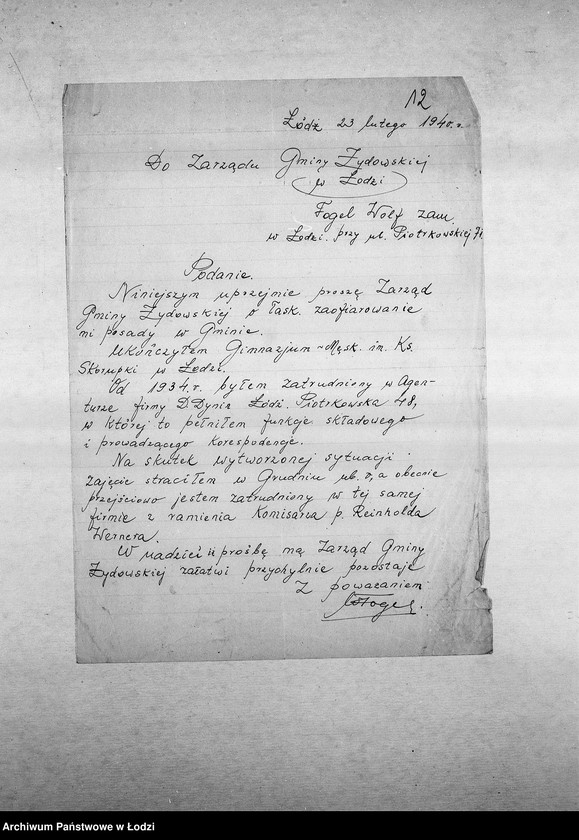 12
Łódź 23 lutego 1940. r.
Do Zarządu Gminy Żydowskiej
w Łodzi
Fogel Wolf zam.
w Łodzi. przy ul. Piotrkowskiej
Podanie.
Niniejszym uprzejmie proszę Zarząd
Gminy Żydowskiej o łask. zaofiarowanie
mi posady w Gminie.
Ukończyłem Gimnazjum-Męsk. im. Ks.
Skorupki w Łodzi.
Od 1934.r. byłem zatrudniony w Agen-
turze firmy D Dynin Łódź. Piotrkowska 48,
w której to pełniłem funkcje składowego
i prowadzącego korespondencje.
Na skutek wytworzonej sytuacji
zajęcie straciłem w Grudniu ub. r, a obecnie
przejściowo jestem zatrudniony w tej samej
firmie z ramienia Komisarza p. Reinholda
Wernera.
W nadzieji iż prośbę mą Zarząd Gminy
Żydowskiej załatwi przychylnie pozostaje
Z poważaniem
WFogel.
Archiwum Państwowe w Łodzi